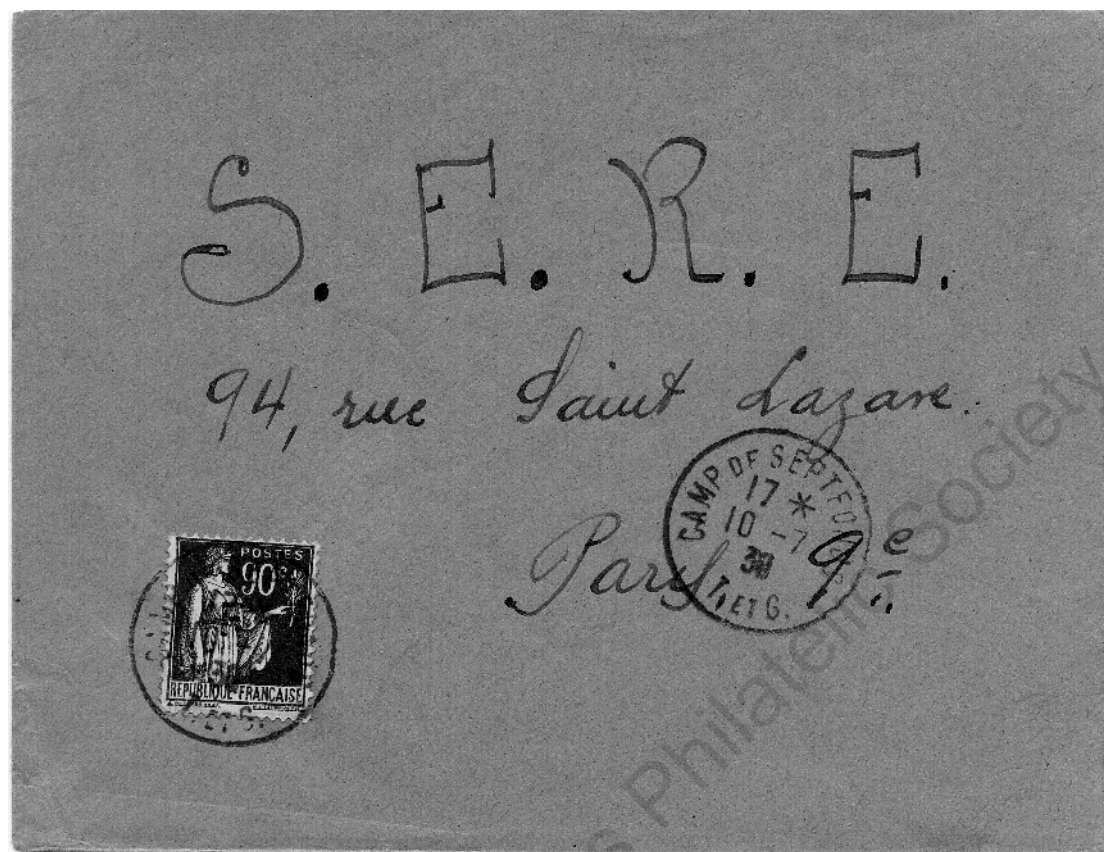 S. E. R. E.
94, rue Saint Lazare.
Paris 9e
CAMP DE SEPTFON
17 *
10 -7
T. ET G.
POSTES
90c
REPUBLIQUE FRANCAISE
ET G.
s Philatelic Society